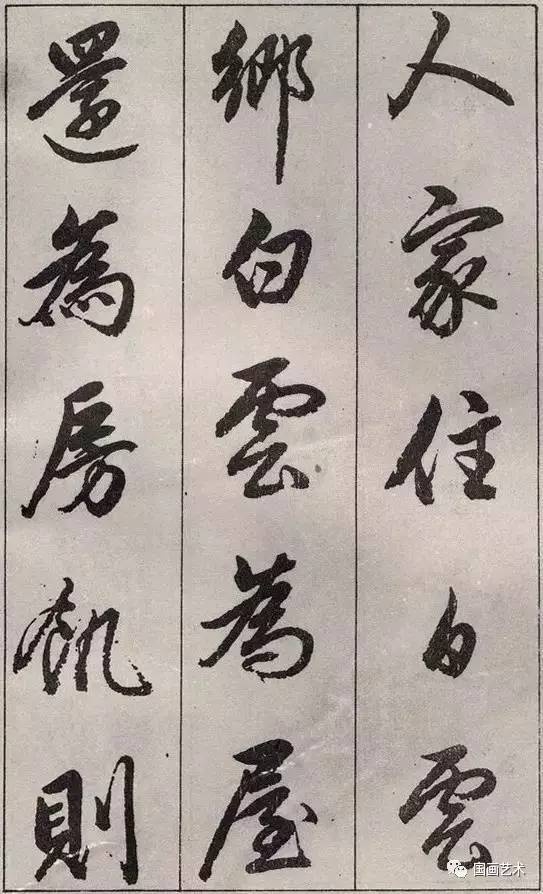 人家住白雲
鄉白雲為屋
還為房飢則
国画艺术